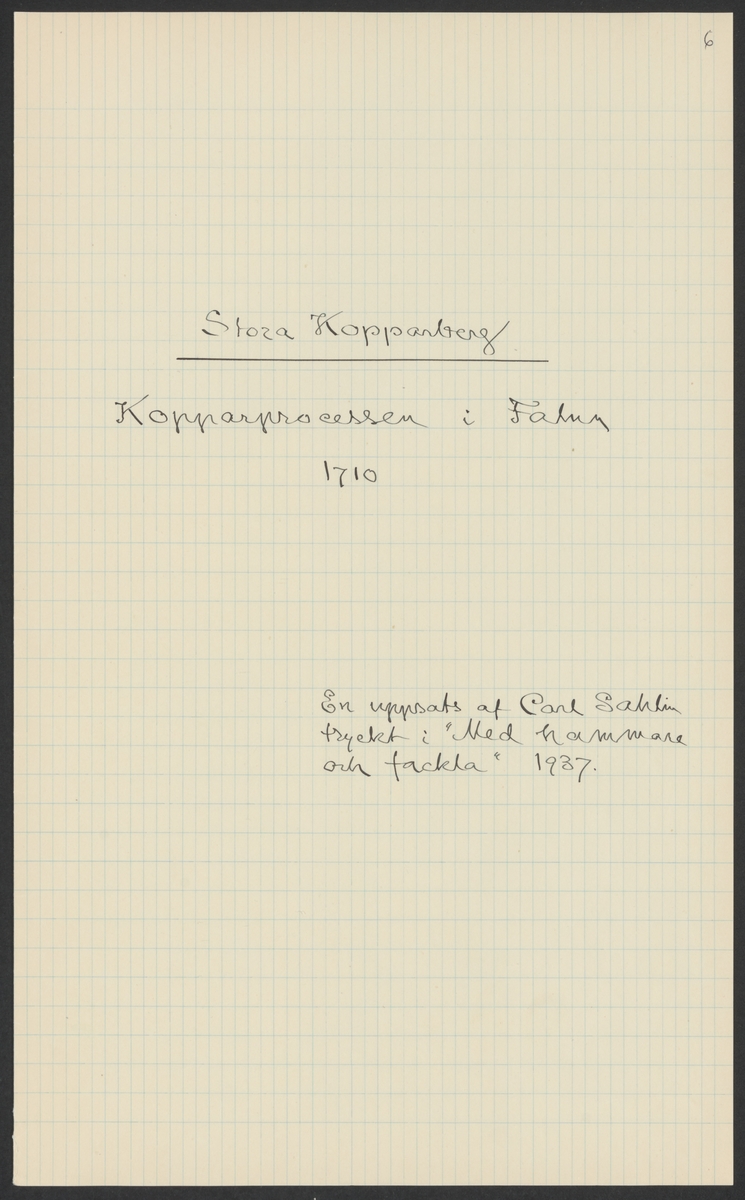 6
Stora Kopparberg
Kopparprocessen i Falun
1710
En uppsats af Carl Sahlin
tryckt i "Med hammare
och fackla" 1937.